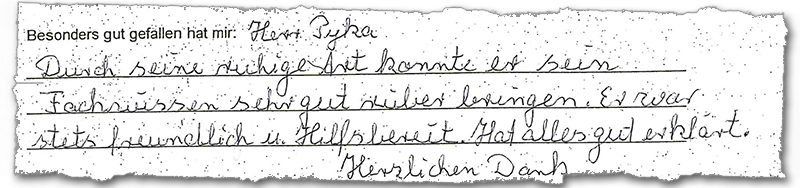 Besonders gut gefallen hat mir: Herr Pyka
Durch seine ruhige Art konnte er sein
Fachwissen sehr gut rüber bringen. Er war
stets freundlich u. Hilfsbereit. Hat alles gut erklärt.
Herzlichen Dank